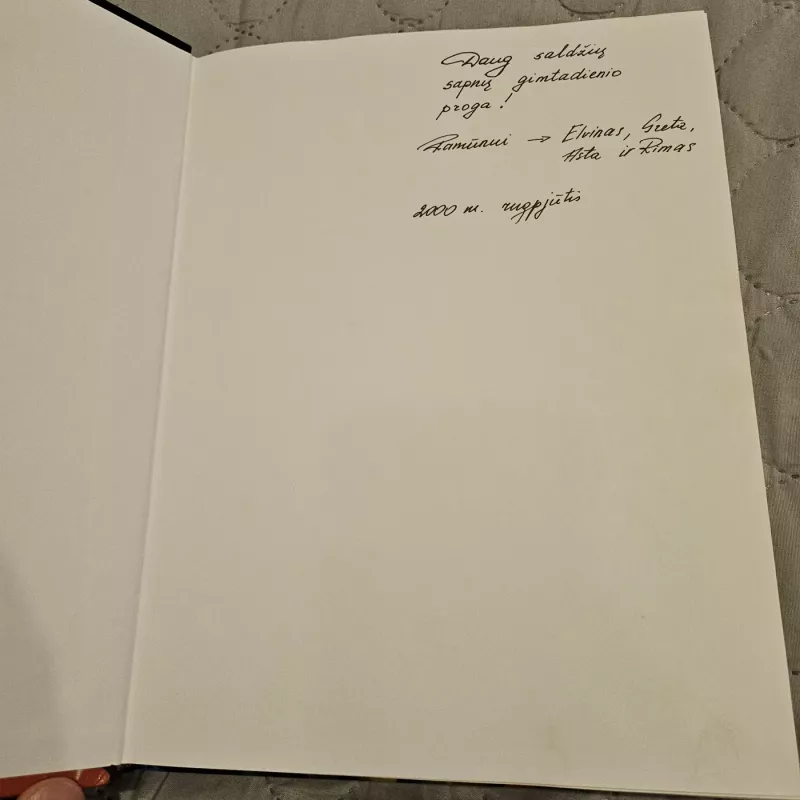 Daug saldžių
sapnų gimtadienio
proga!
Ramūnui → Elvinas, Greta,
Asta ir Rimas
2000 m. rugpjūtis